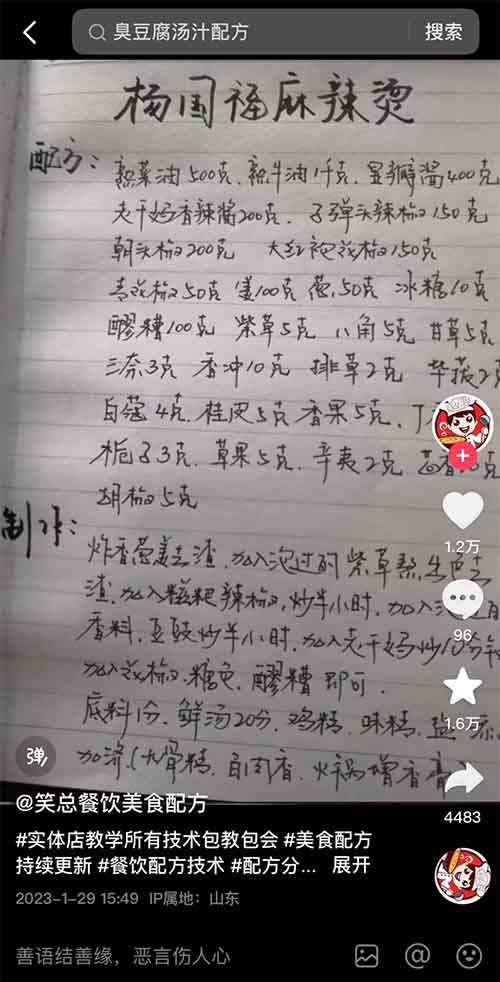 臭豆腐汤汁配方
搜索
杨国福麻辣烫
配方：
熟菜油500克、熟牛油1千克、豆瓣酱400克
老干妈香辣酱200克、子弹头辣椒150克
朝天椒200克 大红袍花椒150克
青花椒50克 姜100克 葱50克 冰糖10克
醪糟100克 紫草5克 八角5克 甘草5克
三奈3克 香
10克 排草2克 荜拨2克
白蔻4克、桂皮5克 香果5克、丁
栀子3克、草果5克、辛夷2克
胡椒5克
制作：
炸香葱姜去渣、加入泡过的紫草熬
渣、加入糍粑辣椒，炒半小时、加入
香料、豆豉炒半小时、加入老干妈炒10分
加入花椒、糖色、醪糟即可.
底料1份、鲜汤20份、鸡精、味精、盐
加济、(大骨精、白肉香、火锅增香膏
1.2万
96
1.6万
4483
弹
@笑总餐饮美食配方
#实体店教学所有技术包教包会 #美食配方
持续更新 #餐饮配方技术 #配方分... 展开
2023-1-29 15:49 IP属地：山东
善语结善缘，恶言伤人心